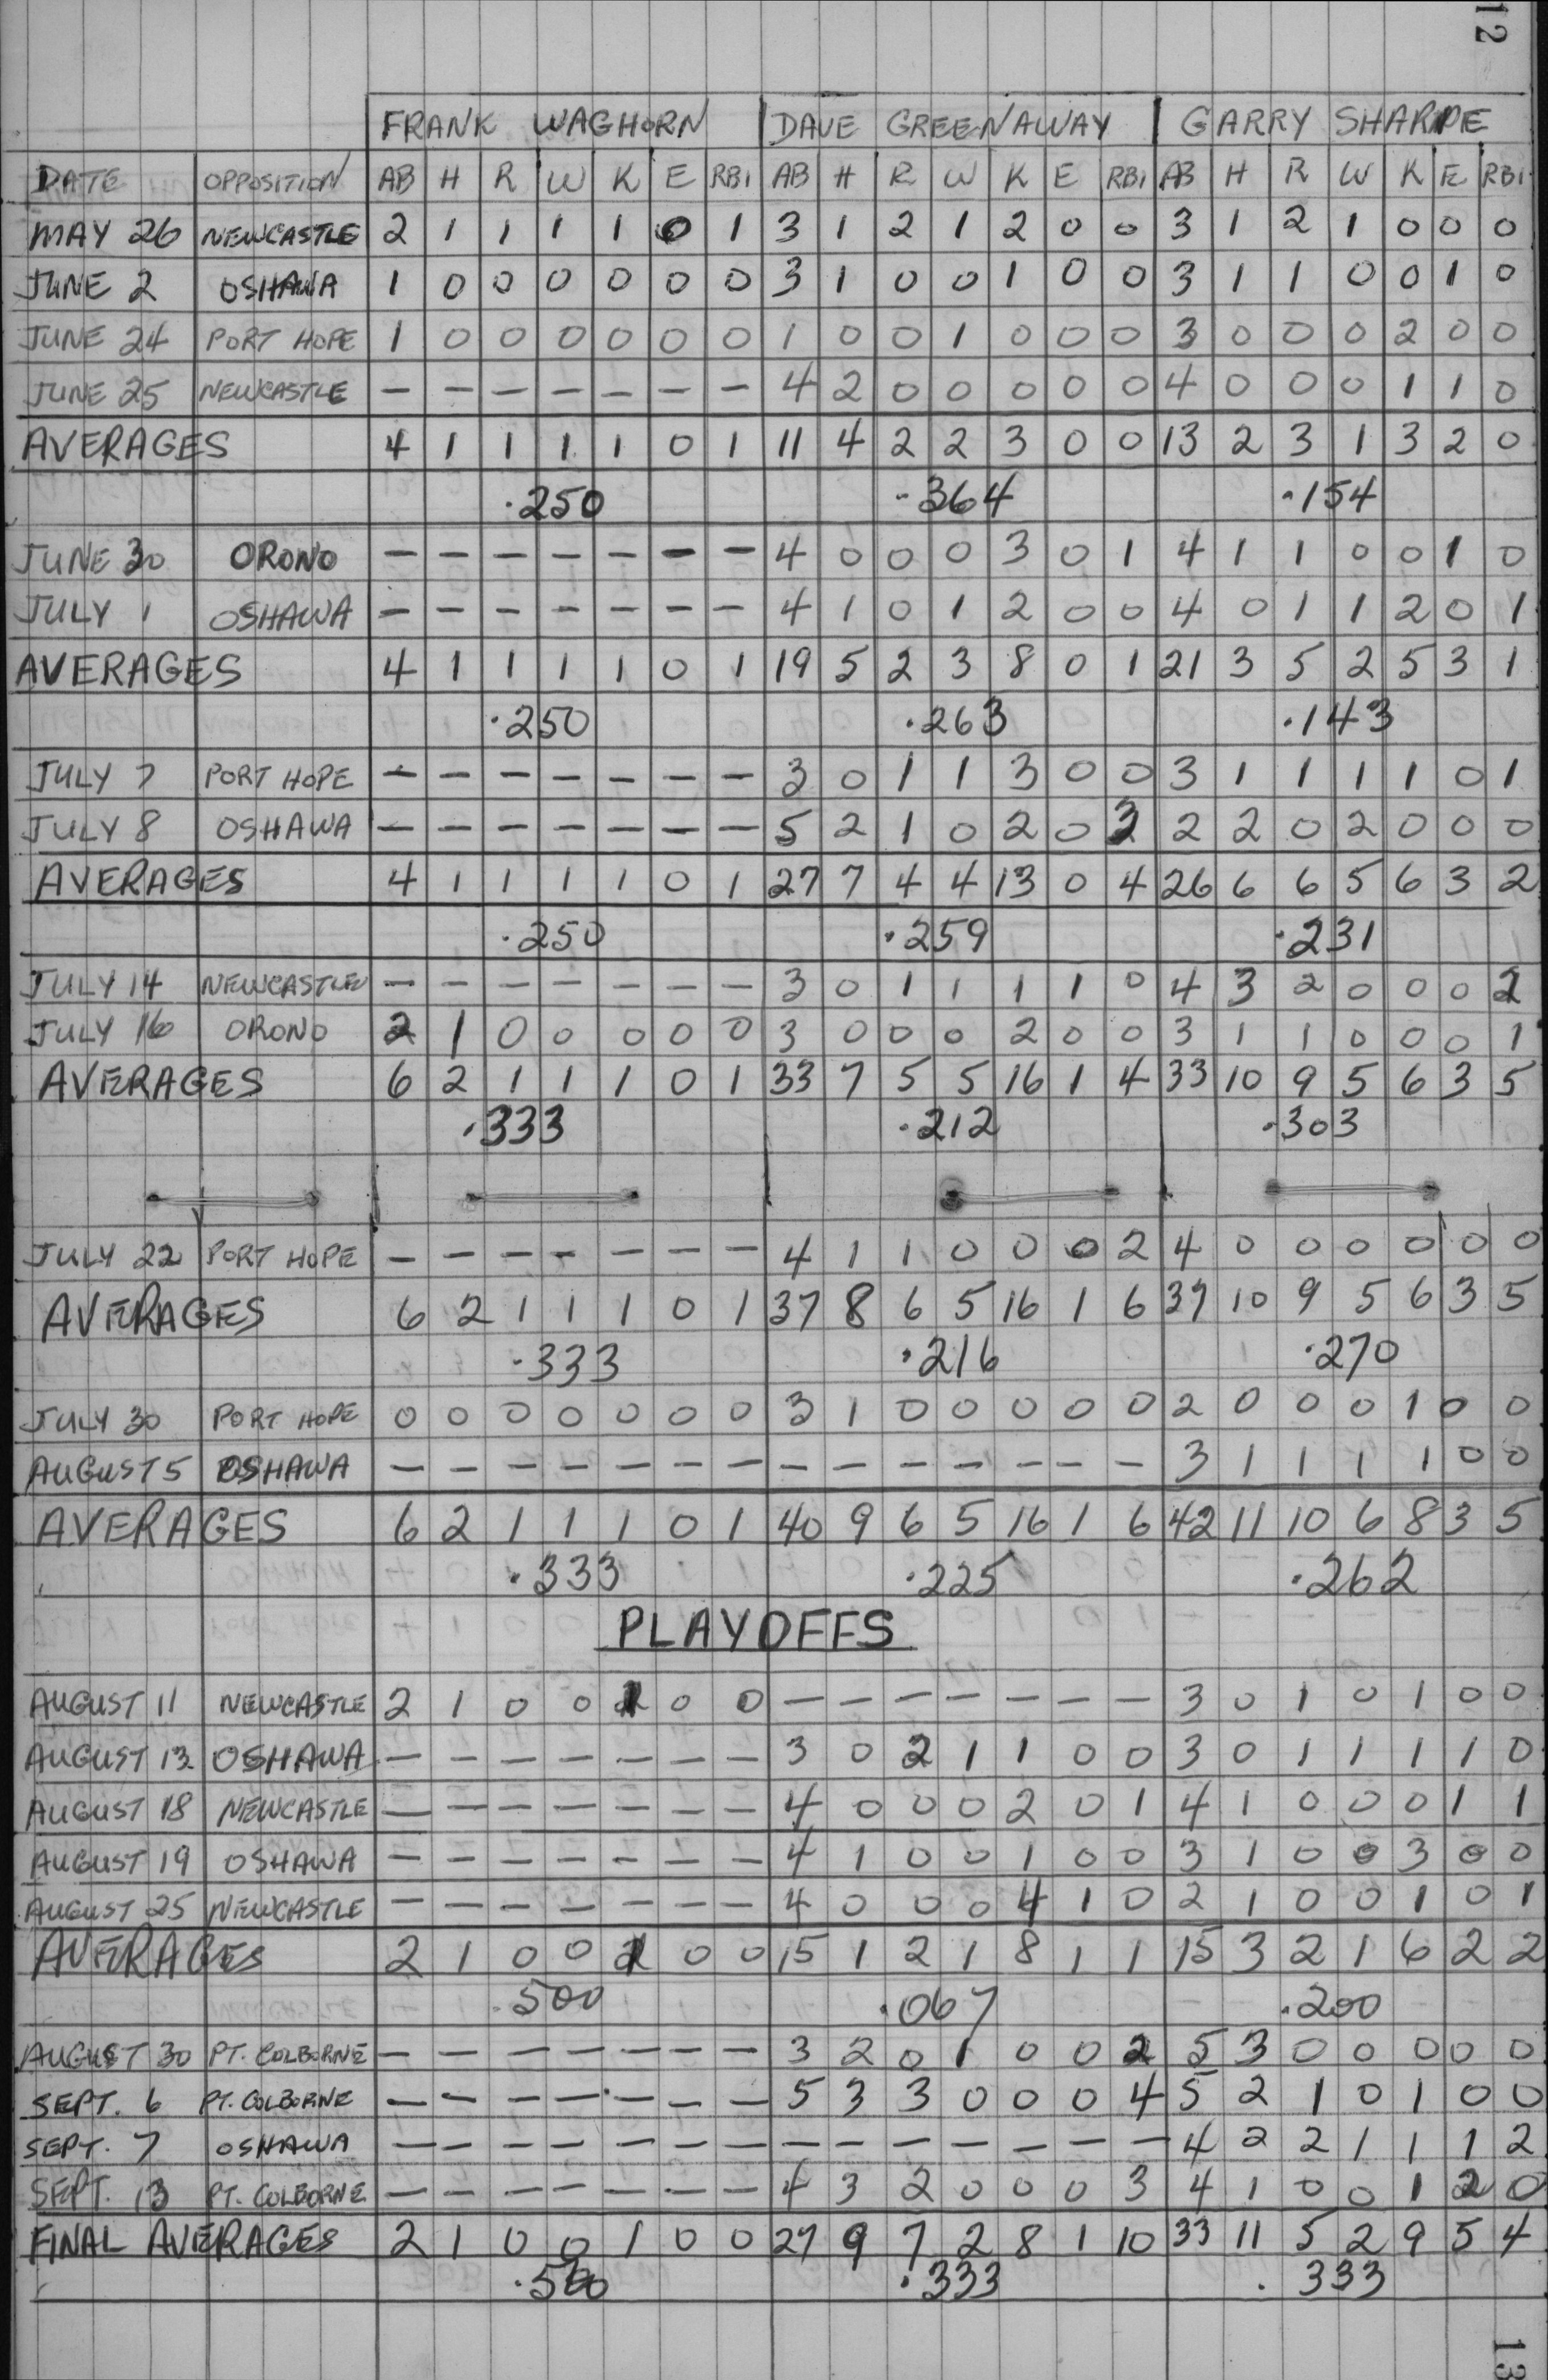 12
FRANK WAGHORN DAVE GREENAWAY GARRY SHARPE
DATE OPPOSITION AB H R W K E RBI AB H R W K E RBI AB H R W K E RBI
MAY 26 NEWCASTLE 2 1 1 1 1 0 1 3 1 2 1 2 0 0 3 1 2 1 0 0 0
JUNE 2 OSHAWA 1 0 0 0 0 0 0 3 1 0 0 1 0 0 3 1 1 0 0 1 0
JUNE 24 PORT HOPE 1 0 0 0 0 0 0 1 0 0 1 0 0 0 3 0 0 0 2 0 0
JUNE 25 NEWCASTLE - - - - - - - 4 2 0 0 0 0 0 4 0 0 0 1 1 0
AVERAGES 4 1 1 1 1 0 1 11 4 2 2 3 0 0 13 2 3 1 3 2 0
.250 .364 .154
JUNE 30 ORONO - - - - - - - 4 0 0 0 3 0 1 4 1 1 0 0 1 0
JULY 1 OSHAWA - - - - - - - 4 1 0 1 2 0 0 4 0 1 1 2 0 1
AVERAGES 4 1 1 1 1 0 1 19 5 2 3 8 0 1 21 3 5 2 5 3 1
.250 .263 .143
JULY 7 PORT HOPE - - - - - - - 3 0 1 1 3 0 0 3 1 1 1 1 0 1
JULY 8 OSHAWA - - - - - - - 5 2 1 0 2 0 3 2 2 0 2 0 0 0
AVERAGES 4 1 1 1 1 0 1 27 7 4 4 13 0 4 26 6 6 5 6 3 2
.250 .259 .231
JULY 14 NEWCASTLE - - - - - - - 3 0 1 1 1 1 0 4 3 2 0 0 0 2
JULY 16 ORONO 2 1 0 0 0 0 0 3 0 0 0 2 0 0 3 1 1 0 0 0 1
AVERAGES 6 2 1 1 1 0 1 33 7 5 5 16 1 4 33 10 9 5 6 3 5
.333 .212 .303
JULY 22 PORT HOPE - - - - - - - 4 1 1 0 0 0 2 4 0 0 0 0 0 0
AVERAGES 6 2 1 1 1 0 1 37 8 6 5 16 1 6 37 10 9 5 6 3 5
.333 .216 .270
JULY 30 PORT HOPE 0 0 0 0 0 0 0 3 1 0 0 0 0 0 2 0 0 0 1 0 0
AUGUST 5 OSHAWA - - - - - - - - - - - - - - 3 1 1 1 1 0 0
AVERAGES 6 2 1 1 1 0 1 40 9 6 5 16 1 6 42 11 10 6 8 3 5
.333 .225 .262
PLAYOFFS
AUGUST 11 NEWCASTLE 2 1 0 0 1 0 0 - - - - - - - 3 0 1 0 1 0 0
AUGUST 13 OSHAWA - - - - - - - 3 0 2 1 1 0 0 3 0 1 1 1 1 0
AUGUST 18 NEWCASTLE - - - - - - - 4 0 0 0 2 0 1 4 1 0 0 0 1 1
AUGUST 19 OSHAWA - - - - - - - 4 1 0 0 1 0 0 3 1 0 0 3 0 0
AUGUST 25 NEWCASTLE - - - - - - - 4 0 0 0 4 1 0 2 1 0 0 1 0 1
AVERAGES 2 1 0 0 1 0 0 15 1 2 1 8 1 1 15 3 2 1 6 2 2
.500 .067 .200
AUGUST 30 PT. COLBORNE - - - - - - - 3 2 0 1 0 0 2 5 3 0 0 0 0 0
SEPT. 6 PT. COLBORNE - - - - - - - 5 3 3 0 0 0 4 5 2 1 0 1 0 0
SEPT. 7 OSHAWA - - - - - - - - - - - - - - 4 2 2 1 1 1 2
SEPT. 13 PT. COLBORNE - - - - - - - 4 3 2 0 0 0 3 4 1 0 0 1 2 0
FINAL AVERAGES 2 1 0 0 1 0 0 27 9 7 2 8 1 10 33 11 5 2 9 5 4
.500 .333 .333
13